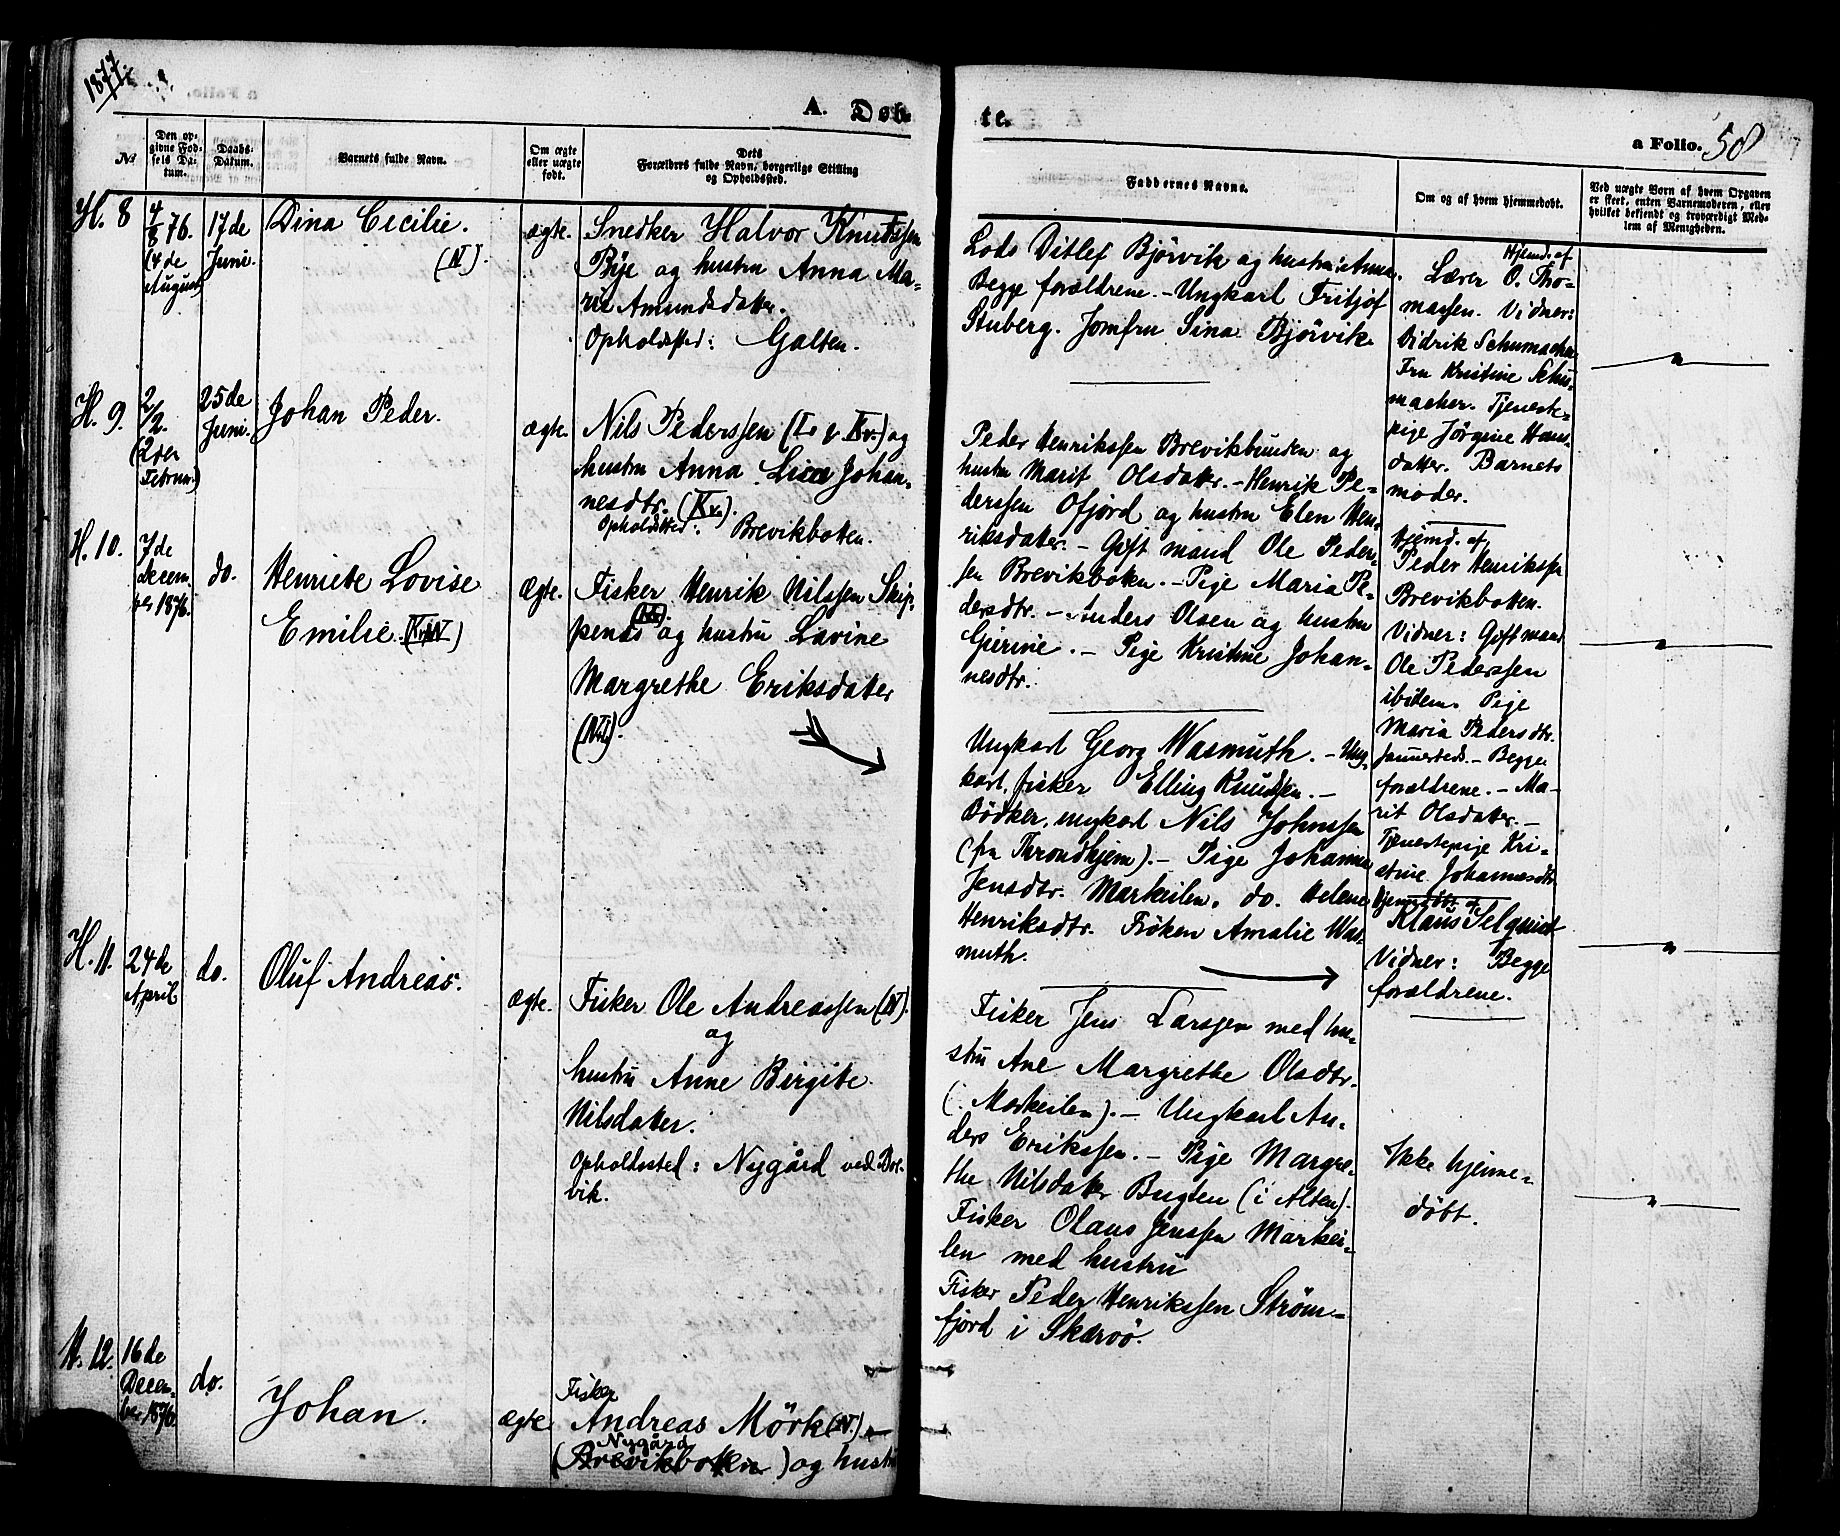 1877.
A. Døb-
te.
a Folio. 58
No
Den op-
givne Fød-
sels Da-
tum.
Daabs-
Datum.
Barnets fulde Navn.
Om ægte
eller uægte
født.
Dets
Forældres fulde Navn, borgerlige Stilling
og Opholdssted.
Faddernes Navne.
Om og af hvem hjemmedøbt.
Ved uægte Børn af hvem Opgaven
er skeet, enten Barnemoderen, eller
hvilket bekjendt og troværdigt Med-
lem af Menigheden.
H. 8
4/8 76.
(4de
August)
17de
Juni.
Dina Cecilie.
(N).
ægte.
Snedker Halvor Knudssen
Bye og hustru Anna Ma-
rit Amundsdatter.
Opholdssted: Galten.
Lods Ditlef Bjørvik og hustru Anna.
Begge forældrene. - Ungkarl Fritjof
Stuberg. Jomfru Sina Bjørvik
Hjemd. af
Lærer O. Tho-
massen. Vidner:
Didrik Schumacher
Fru Kristine Schu-
macher. Tjeneste-
pige Jørgine Hans-
datter. Barnets
moder.
H. 9.
2/2.
(2den
Februar)
25de
Juni.
Johan Peder.
ægte.
Nils Pederssen (L. & Kv.) og
hustru Anna Lisa Johan-
nesdtr. (Kv.).
Opholdssted: Brevikboten.
Peder Henrikssen Brevikbunden og
hustru Marit Olsdatter. - Henrik Pe-
derssen Ofjord og hustru Elen Hen-
riksdatter. - Gift mand Ole Peders-
sen Brevikboten. - Pige Maria Pe-
dersdtr. - Anders Olsen og hustru
Gjerine. - Pige Kristine Johan-
nesdtr.
Hjemd. af
Peder Henrikssen
Brevikboten.
Vidner: Gift mand
Ole Pederssen
ibidem. Pige
Maria Pedersdtr.
sammesteds. - Begge
forældrene. - Ma-
rit Olsdatter. -
Tjenestepige Kri-
stine Johannesdtr.
H. 10.
7de
Decem-
ber 1876.
do.
Henriete Lovise
Emilie.
ægte.
Fisker Henrik Nilssen Skip-
pernes og hustru Lavine
Margrethe Eriksdatter
Ungkarl Georg Wasmuth. - Ung-
karl, fisker Elling Knudsen. -
Bödker, ungkarl Nils Johnssen
(fra Throndhjem). - Pige Johanna
Jensdtr. Markeilen. do. Helene
Henriksdtr. Fröken Amalie Was-
muth.
Hjemdöbt af
Klaus Selqvist
Vidner: Begge
forældrene.
H. 11.
24de
April
do.
Oluf Andreas.
ægte.
Fisker Ole Andreassen (N).
og
hustru Anne Birgite
Nilsdatter.
Opholdssted: Nygård ved Bre-
vik.
Fisker Jens Larssen med hu-
stru Ane Margrethe Olsdtr.
(Markeilen). - Ungkarl An-
ders Erikssen. - Pige Margre-
the Nilsdatter Bugten (i Alten).
Fisker Olaus Jenssen Markei-
len med hustru
Fisker Peder Henrikssen Ström-
fjord i Skærvö.
Ikke hjemme-
döbt.
H. 12.
16de
Decem-
ber 1876
do.
Johan.
ægte
Fisker
Andreas Mörk (N.)
Nygård
(Brevikboten) og hustru